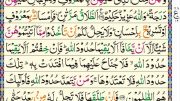 دَرَجَةٌ وَاللَّهُ عَزِيزٌ حَكِيمٌ الطَّلَاقُ مَرَّتَانِ فَإِمْسَاكٌ
بِإِحْسَانٍ وَلَا يَحِلُّ لَكُمْ أَنْ تَأْخُذُوا مِمَّا آتَيْتُمُوهُنَّ
شَيْئًا إِلَّا أَنْ يَخَافَا أَلَّا يُقِيمَا حُدُودَ اللَّهِ فَإِنْ خِفْتُمْ أَلَّا يُقِيمَا
حُدُودَ اللَّهِ فَلَا جُنَاحَ عَلَيْهِمَا فِيمَا افْتَدَتْ بِهِ تِلْكَ
حُدُودُ اللَّهِ فَلَا تَعْتَدُوهَا وَمَنْ يَتَعَدَّ حُدُودَ اللَّهِ
هُمُ الظَّالِمُونَ فَإِنْ طَلَّقَهَا فَلَا تَحِلُّ لَهُ